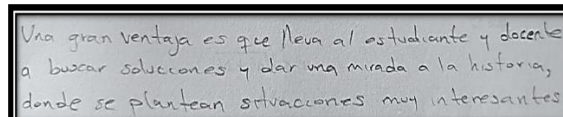 Una gran ventaja es que lleva al estudiante y docente
a buscar soluciones y dar una mirada a la historia,
donde se plantean situaciones muy interesantes